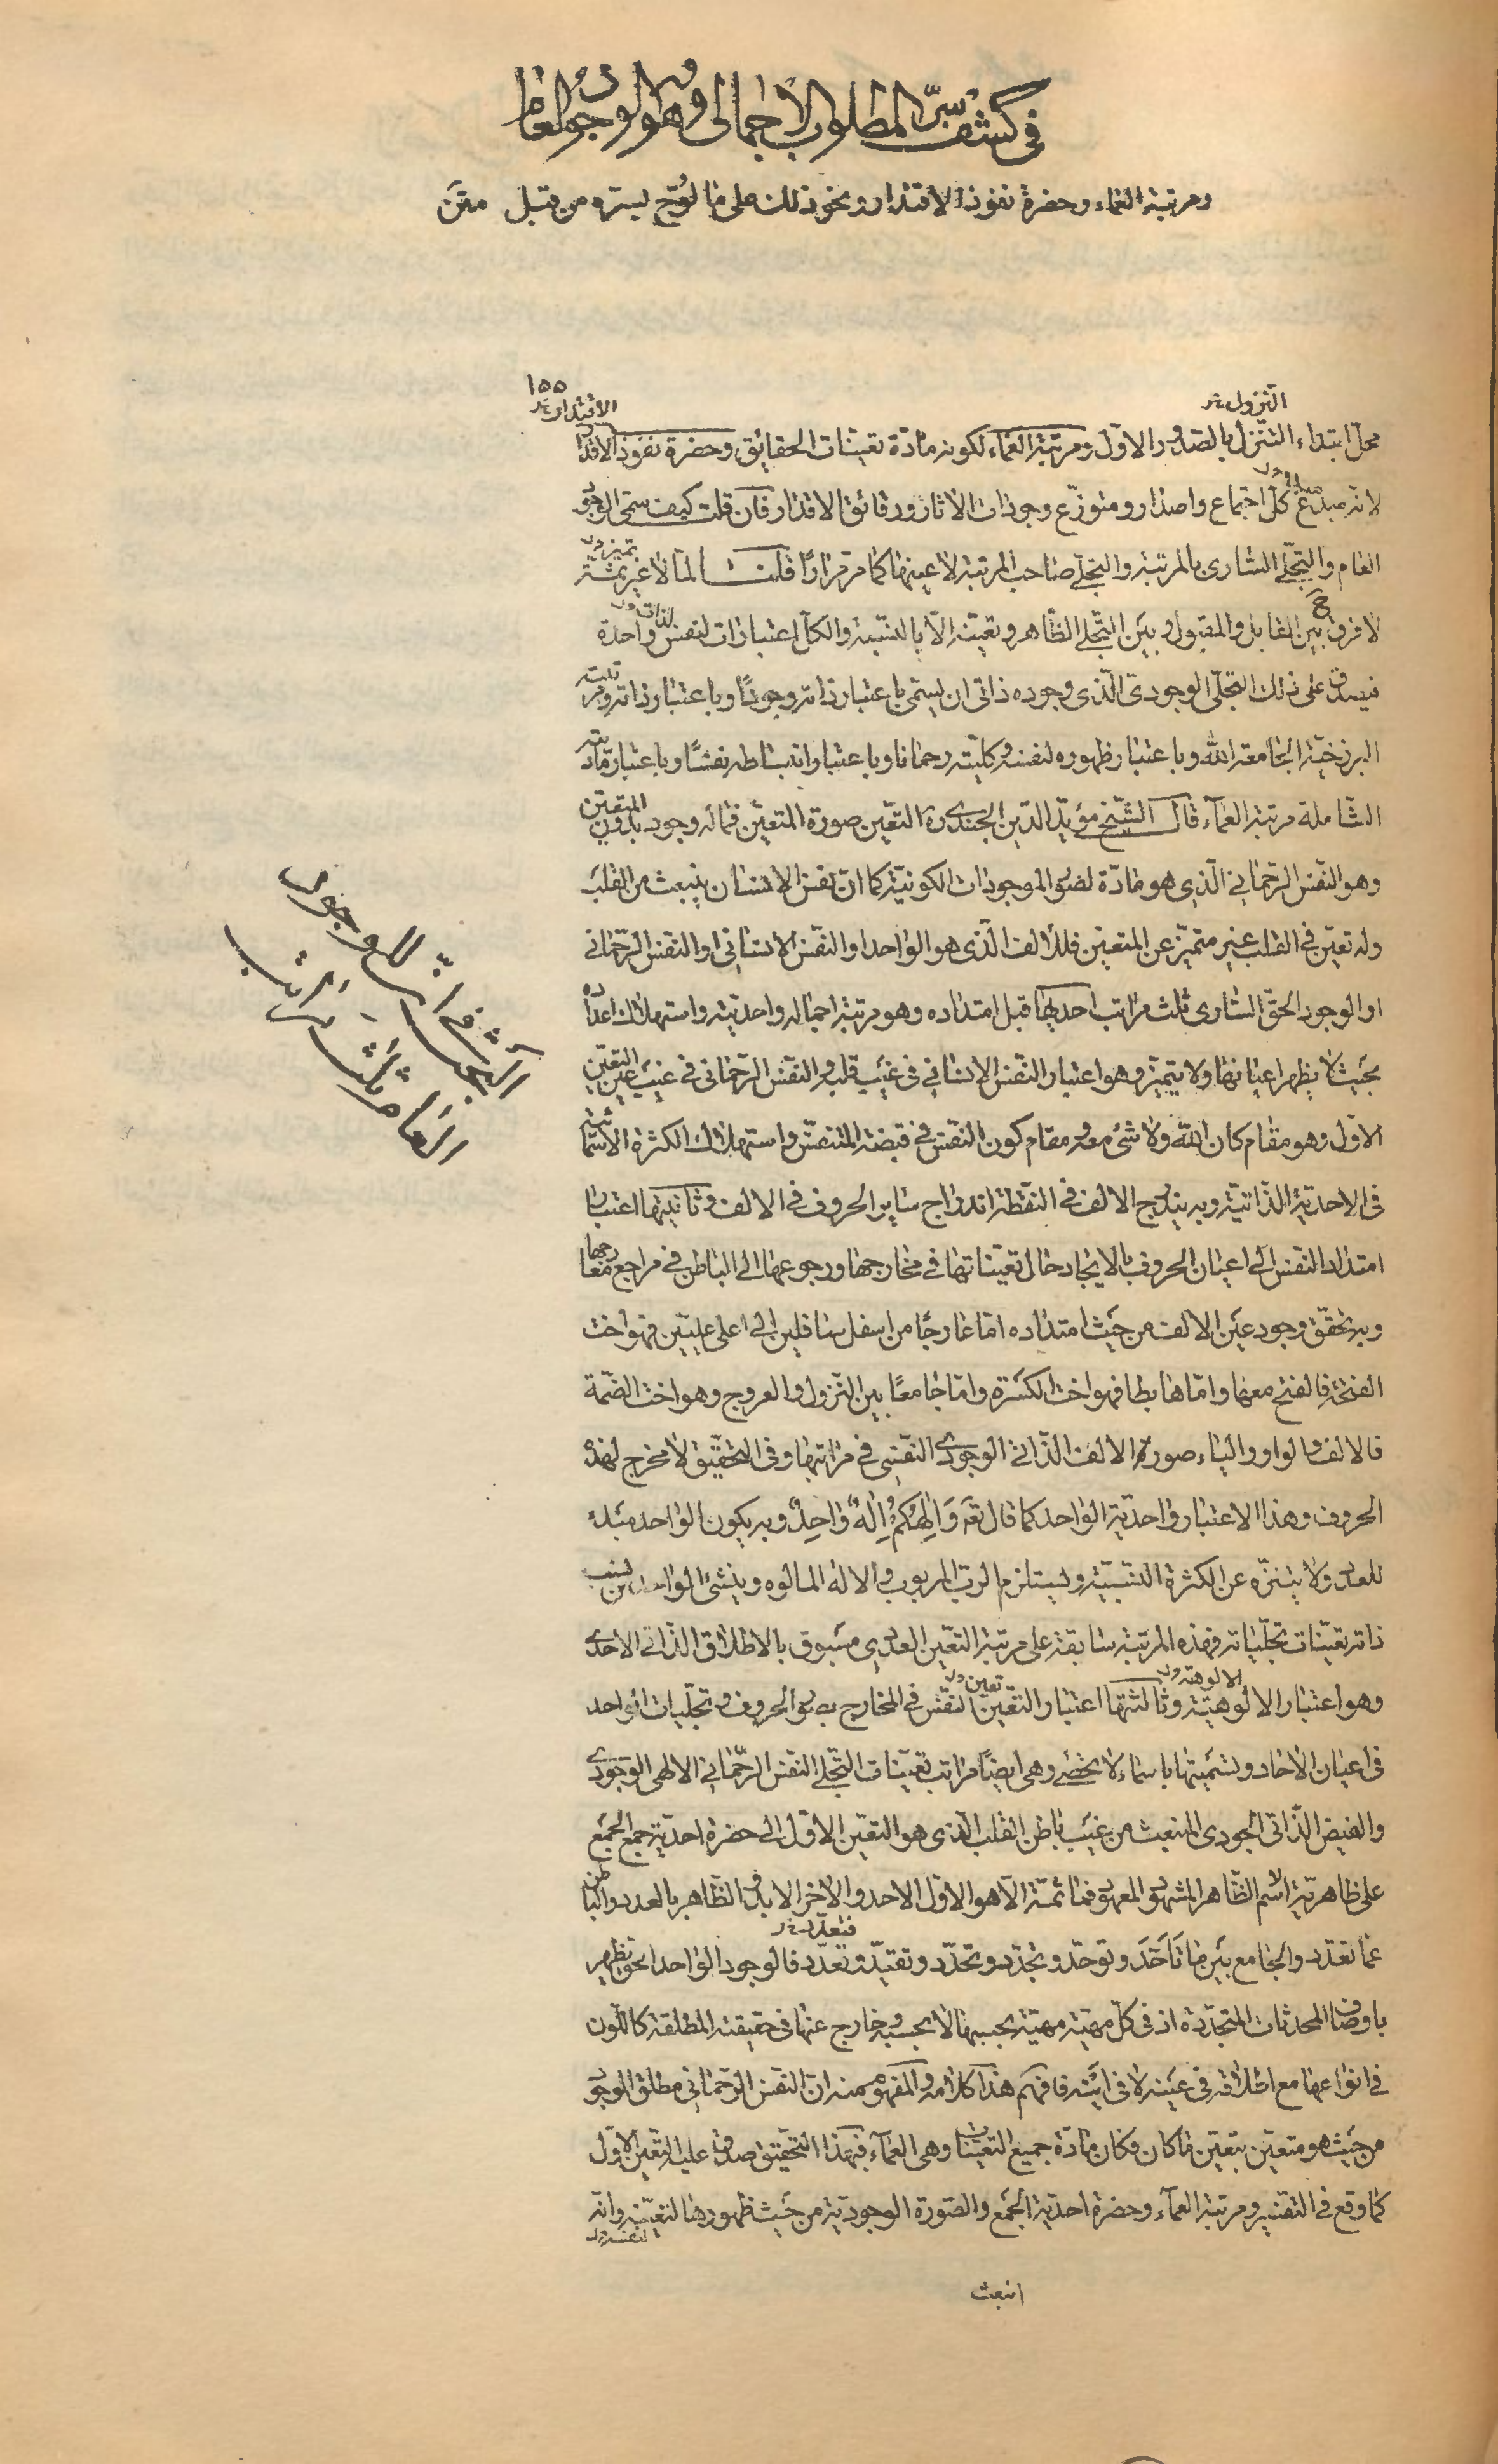 في كشف سرّ المطلوب الاجمالى وهو الوجود العام
ومرتبة العماء وحضرة نفوذ الاقتدار ونحو ذلك على ما لوّح بسرّه من قبل متن
١٥٥
النزول خ
الاقتدار خ
محل ابتداء التنزل بالصدور الاول ومرتبة العماء لكونه مادّة تعينات الحقايق وحضرة نفوذ الاقتدار
لانه مبدء كل اجتماع واصدار ومتوزّع وجودات الاثار ورقائق الاقدار فان قلت كيف سمّى الوجود
العام والتجلّى السارى بالمرتبة والتجلّى صاحب المرتبة لا عينها كما مر مرارًا قلنا لما لا غير ثمّة
لا فرق ح بين القابل والمقبول وبين التجلى الظاهر وتعينه الّا بالنسبة والكل اعتبارات لنفس واحدة
فيصدق على ذلك التجلّى الوجودىّ الّذى وجوده ذاتى ان يسمّى باعتبار ذاته وجودًا وباعتبار ذاته ومرتبته
البرزخيّة الجامعة الله وباعتبار ظهوره لنفسه وكليته رحمانا وباعتبار انبساطه نفسًا وباعتبار مادّيته
الشاملة مرتبة العمآء قال الشيخ مؤيّد الدّين الجندى ره التعّين صورة المتعيّن فما له وجود بدون المتعيّن
وهو النفس الرّحمانى الّذى هو مادّة لصور الموجودات الكونيّة كما انّ نفس الانسان ينبعث من القلب
وله تعيّن في القلب غير متميّز عن المتعيّن فللالف الّذى هو الواحد او النفس الانسانى او النفس الرّحمانى
او الوجود الحق السارى ثلث مراتب احديها قبل امتداده وهو مرتبة اجماله واحديّته واستهلاك اعداده
بحيث لا يظهر اعيانها ولا يتميز وهو اعتبار النفس الانسانى فى غيب قلبه والنفس الرّحمانى فى غيب عين التعيّن
الاول وهو مقام كان الله ولا شئ معه ومقام كون النفس فى قبضة المتنفّس واستهلاك الكثرة الاسمائية
فى الاحدية الذاتيّة وبه يندرج الالف فى النقطة اندراج ساير الحروف فى الالف وثانيتها اعتبار
امتداد النفس الى اعيان الحروف بالايجاد حال تعيّناتها فى مخارجها ورجوعها الى الباطن فى مراجع معارجها
وبه تحقّق وجود عين الالف من حيث امتداده امّا عارجًا من اسفل سافلين الى اعلى عليّين فهو اخت
الفتحة فالفتح معها وامّا هابطا فهو اخت الكسرة وامّا جامعًا بين النزول والعروج وهو اخت الضمّة
فالالف والواو والياء صورة الالف الذّاتى الوجودى النّفسى فى مراتبها وفى التحقيق لا مخرج لهذه
الحروف وهذا الاعتبار واحديّة الواحد كما قال تعه وَاِلٰهُكُمْ اِلٰهٌ وٰاحِدٌ وبه يكون الواحد مبدء
للعدد ولا يتنزّه عن الكثرة النسبيّة ويستلزم الرب المربوب والاله المالوه وينشئ الواحد من نسب
ذاته تعيّنات تجلّياته فهذه المرتبة سابقة على مرتبة التعيّن العددى مسبوق بالاطلاق الذّاتى الاحدى
وهو اعتبار الالوهيّة وثالثتها اعتبار التعيّن النفس فى المخارج بصور الحروف وتجلّيات الواحد
الالوهة ول
تعين ول
فى اعيان الاحاد وتسميتها باسماء لا تحصى وهى ايضًا مراتب تعيّنات التجلّى النفس الرّحمانى الالهى الوجودى
والفيض الذّاتى الجودى المنبعث من غيب باطن القلب الّذى هو التعيّن الاوّل الى حضرة احديّة جمع الجمع
على ظاهريّة اسم الظّاهر المشهود المعهود فما ثمّة الّا هو الاوّل الاحد والاخر الابد والظّاهر بالعدد والباطن
فتعدّد خ
عمّا تعدّد والجامع بين ما تاحّد وتوحّد وتجدّد وتحدّد وتقيّد وتعدّد فالوجود الواحد الحق يظهر
باوصاف المحدثات المتجدّدة اذ فى كلّ مهيّة مهيّة بحسبها لا بحسبه وخارج عنها فى حقيقته المطلقة كاللّون
فى انواعها مع اطلاقه فى عينه لا فى اينه فافهم هذا كلامه والمفهوم منه انّ النفس الرّحمانى مطلق الوجود
من حيث هو متعيّن بتعيّن ما كان وكان مادّة جميع التعيّنات وهى العمآء فبهذا التحقيق صدق عليه التعين الاول
كما وقع فى التفسير ومرتبة العمآء وحضرة احديّة الجمع والصّورة الوجوديّة من حيث ظهورها لتعيّنه وانّه
لنفسه ول
انبعث
البحث فى انّ للوجود
العام ثلث مراتب